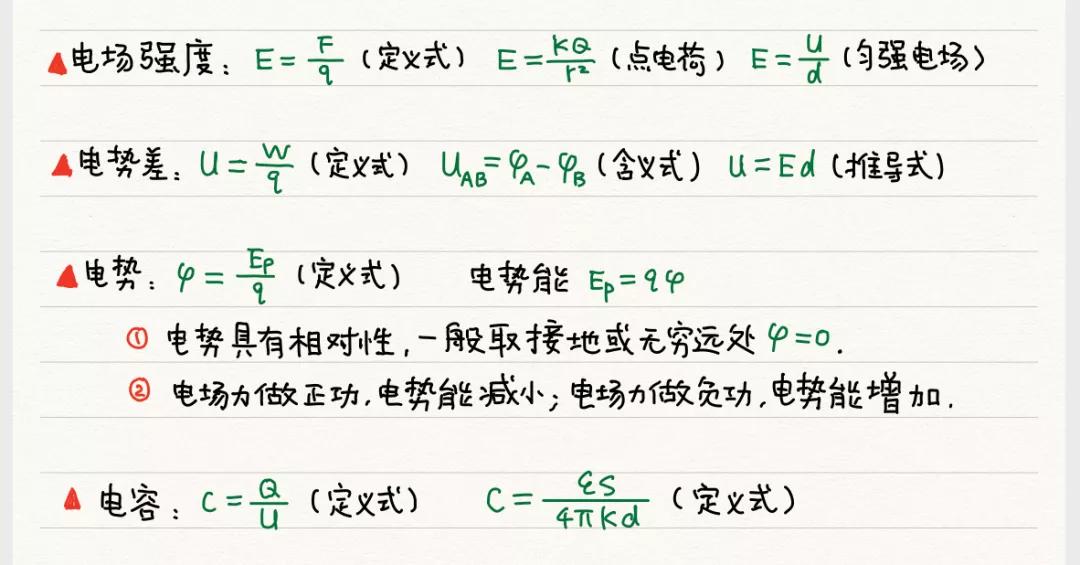 ▲电场强度: E=F/q (定义式) E=kQ/r² (点电荷) E=U/d (匀强电场)
▲电势差: U=W/q (定义式) U_AB=φ_A-φ_B (含义式) U=Ed (推导式)
▲电势: φ=Ep/q (定义式) 电势能 Ep=qφ
① 电势具有相对性,一般取接地或无穷远处φ=0.
② 电场力做正功,电势能减小;电场力做负功,电势能增加.
▲电容: C=Q/U (定义式) C=εS/4πkd (定义式)